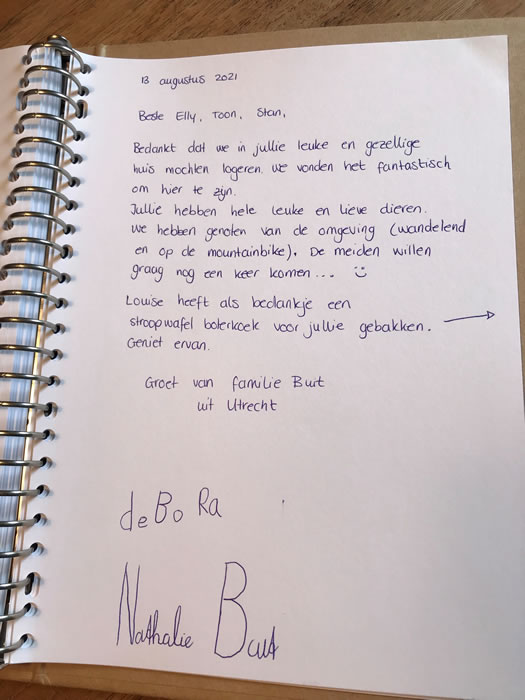 13 augustus 2021
Beste Elly, Toon, Stan,
Bedankt dat we in jullie leuke en gezellige
huis mochten logeren. We vonden het fantastisch
om hier te zijn.
Jullie hebben hele leuke en lieve dieren.
We hebben genoten van de omgeving (wandelend
en op de mountainbike). De meiden willen
graag nog een keer komen... :)
Louise heeft als bedankje een
stroopwafel boterkoek voor jullie gebakken. →
Geniet ervan.
Groet van familie Buit
uit Utrecht
deBoRa
Nathalie Buit